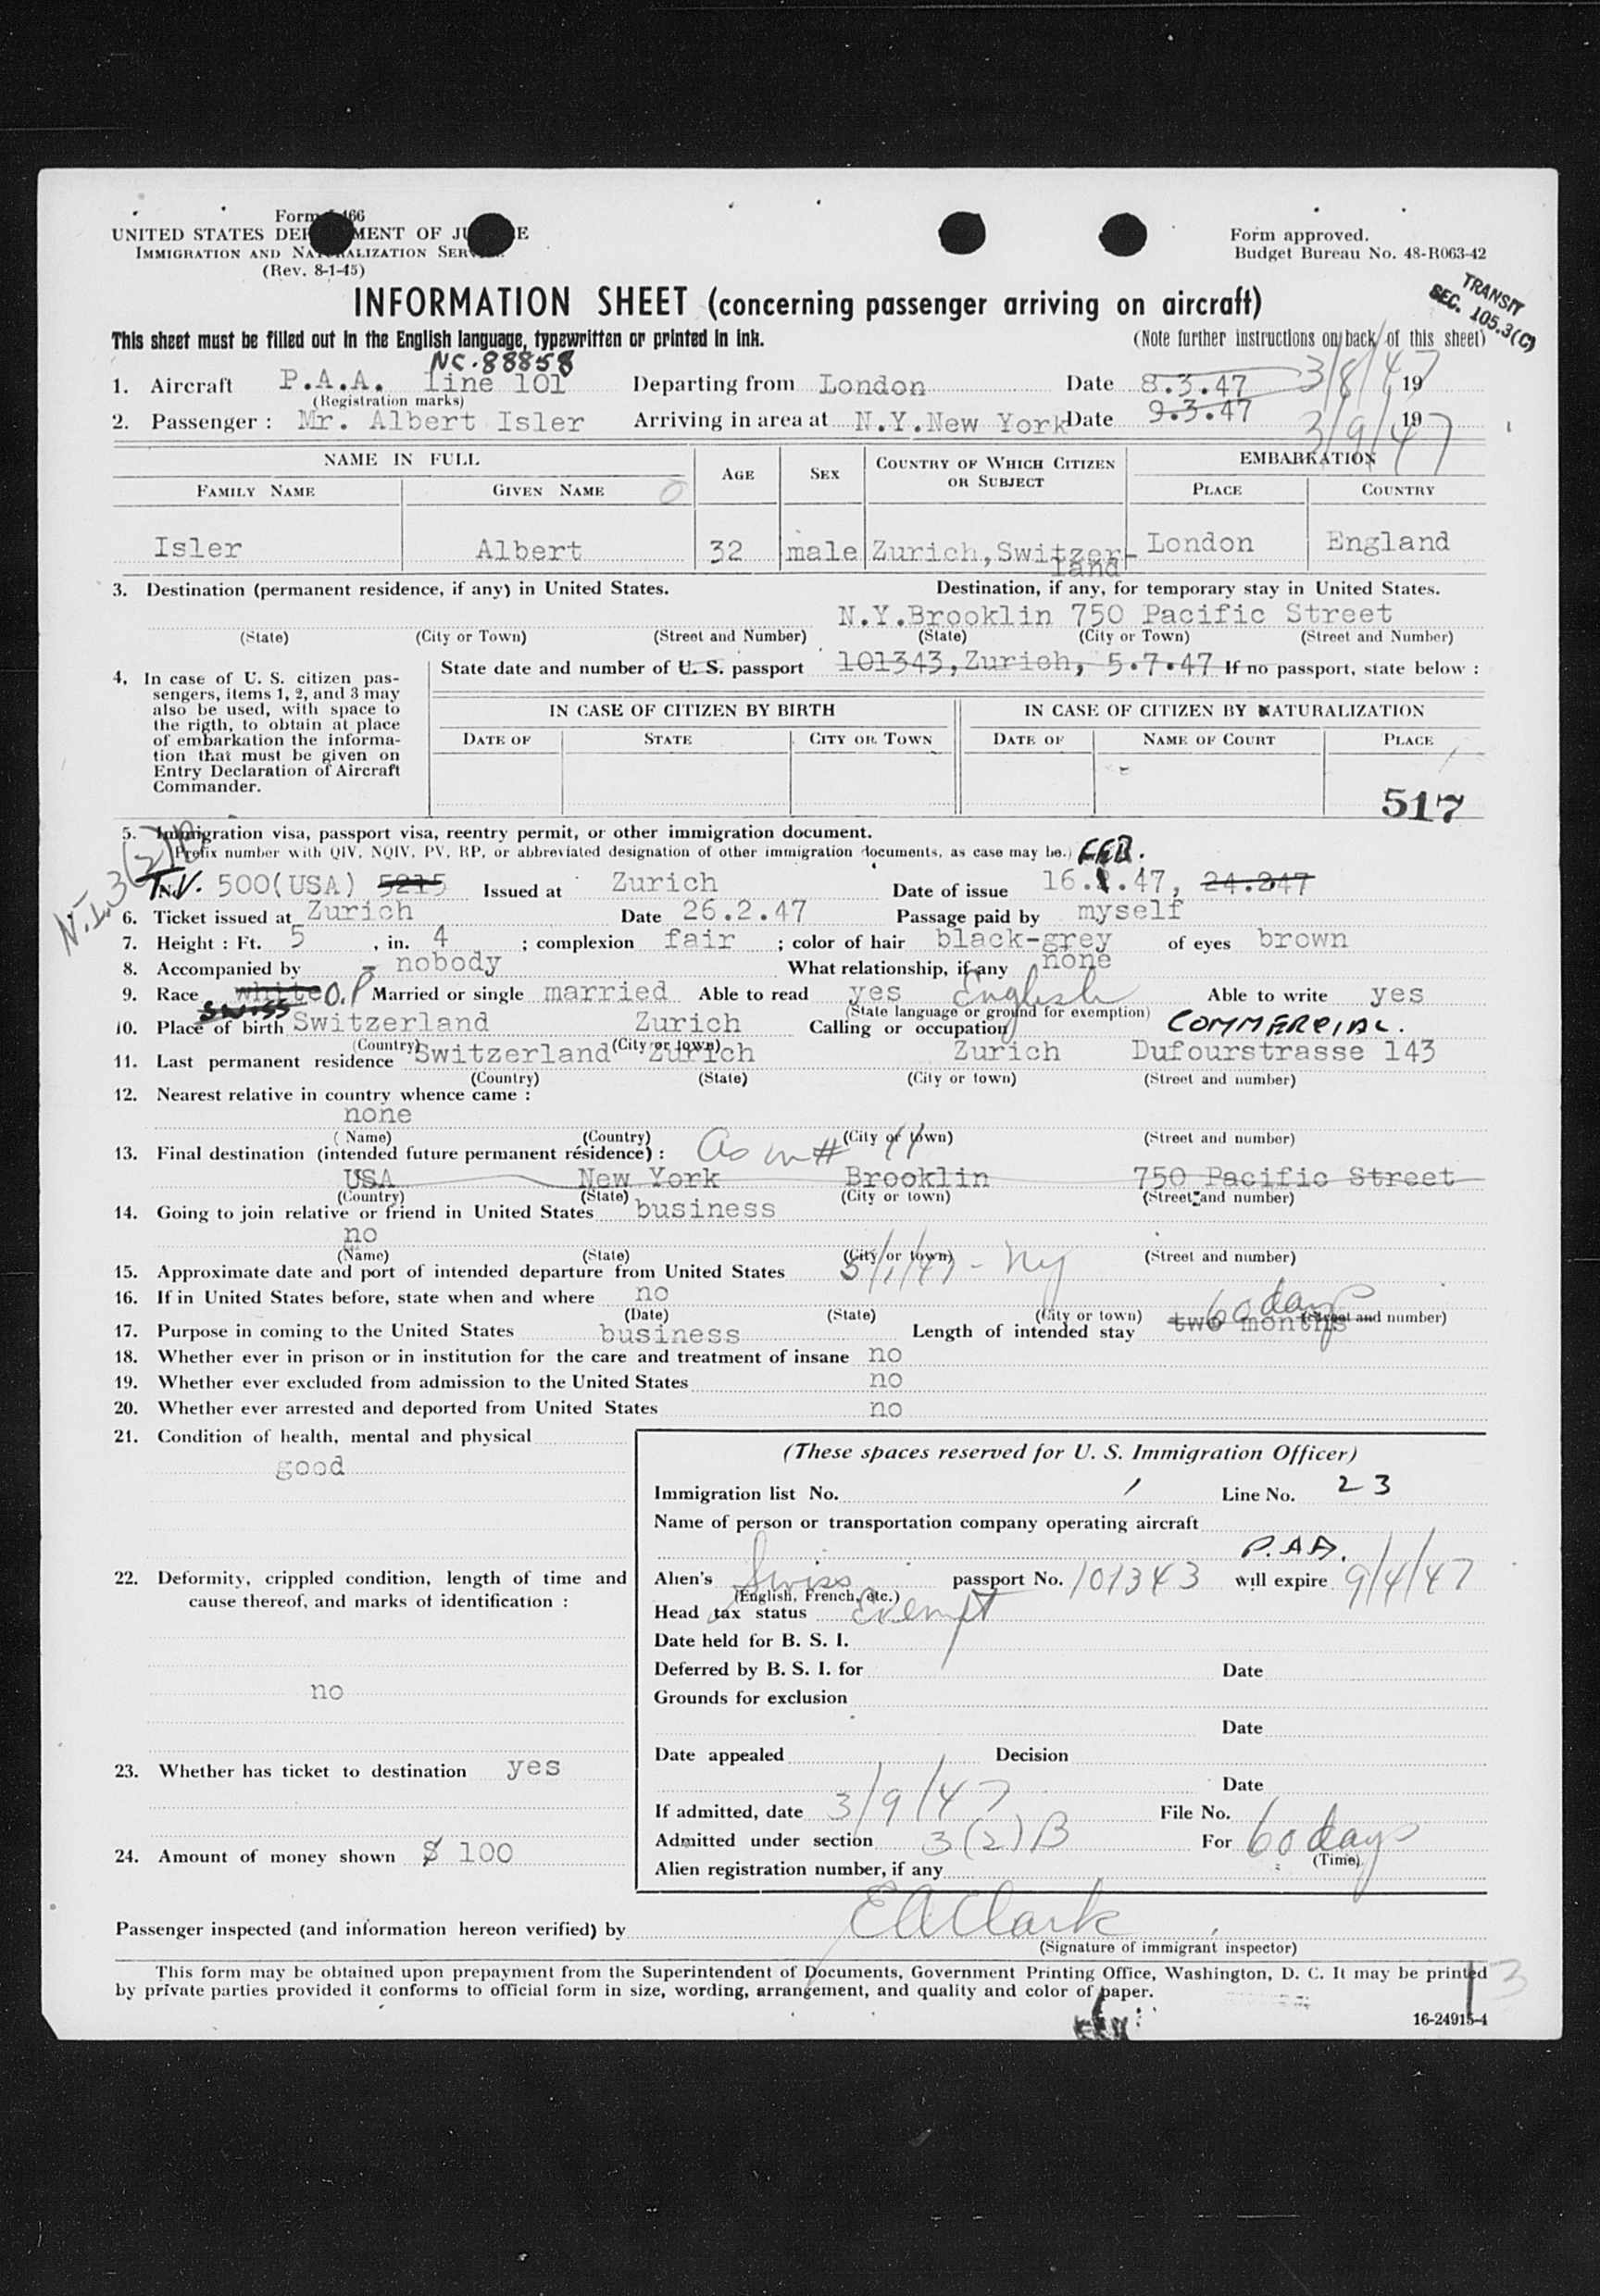 Form I-466
UNITED STATES DEPARTMENT OF JUSTICE
IMMIGRATION AND NATURALIZATION SERVICE
(Rev. 8-1-45)
Form approved.
Budget Bureau No. 48-R063-42
TRANSIT
SEC. 105.3(C)
INFORMATION SHEET (concerning passenger arriving on aircraft)
This sheet must be filled out in the English language, typewritten or printed in ink. (Note further instructions on back of this sheet)
NC-88858
1. Aircraft P.A.A. line 101 Departing from London Date 8.3.47 3/8/47 19
(Registration marks)
2. Passenger: Mr. Albert Isler Arriving in area at N.Y.New York Date 9.3.47 3/9/47 19
NAME IN FULL AGE SEX COUNTRY OF WHICH CITIZEN OR SUBJECT EMBARKATION
FAMILY NAME GIVEN NAME PLACE COUNTRY
Isler Albert 32 male Zurich,Switzer-land London England
3. Destination (permanent residence, if any) in United States. Destination, if any, for temporary stay in United States.
N.Y.Brooklin 750 Pacific Street
(State) (City or Town) (Street and Number) (State) (City or Town) (Street and Number)
4. In case of U. S. citizen pas-
sengers, items 1, 2, and 3 may
also be used, with space to
the rigth, to obtain at place
of embarkation the informa-
tion that must be given on
Entry Declaration of Aircraft
Commander.
State date and number of U. S. passport 101343,Zurich, 5.7.47 If no passport, state below:
IN CASE OF CITIZEN BY BIRTH IN CASE OF CITIZEN BY NATURALIZATION
DATE OF STATE CITY OR TOWN DATE OF NAME OF COURT PLACE
517
5. Immigration visa, passport visa, reentry permit, or other immigration document.
(Prefix number with QIV, NQIV, PV, RP, or abbreviated designation of other immigration documents, as case may be.) FEB.
N.I. 3(2)B
T.V. No. 500(USA) 5215 Issued at Zurich Date of issue 16.2.47, 24.247
6. Ticket issued at Zurich Date 26.2.47 Passage paid by myself
7. Height: Ft. 5, in. 4; complexion fair; color of hair black-grey of eyes brown
8. Accompanied by - nobody What relationship, if any none
9. Race white O.P Married or single married Able to read yes English Able to write yes
SWISS (State language or ground for exemption)
10. Place of birth Switzerland Zurich Calling or occupation COMMERCIAL.
(Country) (City or town)
11. Last permanent residence Switzerland Zurich Zurich Dufourstrasse 143
(Country) (State) (City or town) (Street and number)
12. Nearest relative in country whence came:
none
(Name) (Country) (City or town) (Street and number)
13. Final destination (intended future permanent residence): As in # 11
USA New York Brooklin 750 Pacific Street
(Country) (State) (City or town) (Street and number)
14. Going to join relative or friend in United States business
no
(Name) (State) (City or town) (Street and number)
15. Approximate date and port of intended departure from United States 5/1/47 - Ny
16. If in United States before, state when and where no
(Date) (State) (City or town) (Street and number)
17. Purpose in coming to the United States business Length of intended stay two months 60 days
18. Whether ever in prison or in institution for the care and treatment of insane no
19. Whether ever excluded from admission to the United States no
20. Whether ever arrested and deported from United States no
21. Condition of health, mental and physical
good
22. Deformity, crippled condition, length of time and
cause thereof, and marks of identification:
no
23. Whether has ticket to destination yes
24. Amount of money shown $ 100
(These spaces reserved for U. S. Immigration Officer)
Immigration list No. 1 Line No. 23
Name of person or transportation company operating aircraft
P.A.A.
Alien's Swiss passport No. 101343 will expire 9/4/47
(English, French, etc.)
Head tax status Exempt
Date held for B. S. I.
Deferred by B. S. I. for Date
Grounds for exclusion
Date
Date appealed Decision
Date
If admitted, date 3/9/47 File No.
Admitted under section 3(2)B For 60 days
(Time)
Alien registration number, if any
Passenger inspected (and information hereon verified) by E A Clark
(Signature of immigrant inspector)
This form may be obtained upon prepayment from the Superintendent of Documents, Government Printing Office, Washington, D. C. It may be printed
by private parties provided it conforms to official form in size, wording, arrangement, and quality and color of paper.
16-24915-4